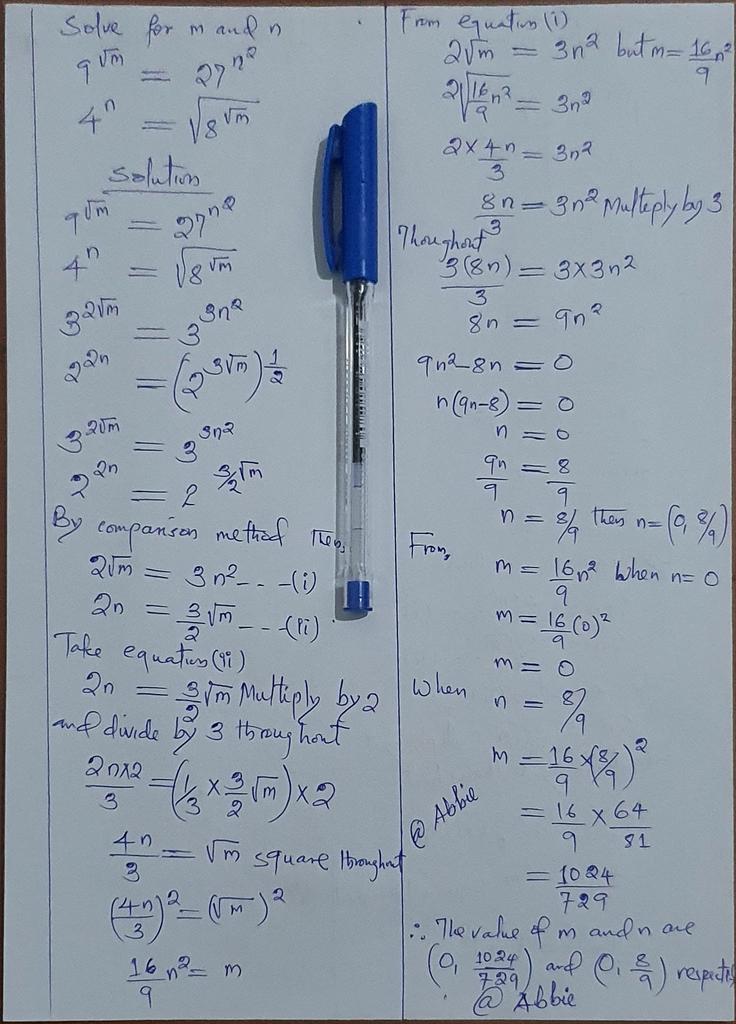 Solve for m and n
9^√m = 27^n²
4^n = √(8^√m)
Solution
9^√m = 27^n²
4^n = √(8^√m)
3^2√m = 3^3n²
2^2n = (2^3√m)^1/2
3^2√m = 3^3n²
2^2n = 2^3/2√m
By comparison method then,
2√m = 3n² - - - (i)
2n = 3/2 √m - - - (ii)
Take equation (ii)
2n = 3/2 √m Multiply by 2
and divide by 3 throughout
2n×2/3 = (1/3 × 3/2 √m) × 2
4n/3 = √m square throughout
(4n/3)² = (√m)²
16/9 n² = m
From equation (i)
2√m = 3n² but m = 16/9 n²
2√(16/9 n²) = 3n²
2 × 4n/3 = 3n²
8n/3 = 3n² Multiply by 3
Throughout
3(8n)/3 = 3×3n²
8n = 9n²
9n²-8n = 0
n(9n-8) = 0
n = 0
9n/9 = 8/9
n = 8/9 then n = (0, 8/9)
From,
m = 16/9 n² when n = 0
m = 16/9 (0)²
m = 0
When n = 8/9
m = 16/9 × (8/9)²
= 16/9 × 64/81
@ Abbie
= 1024/729
∴ The value of m and n are
(0, 1024/729) and (0, 8/9)
@ Abbie